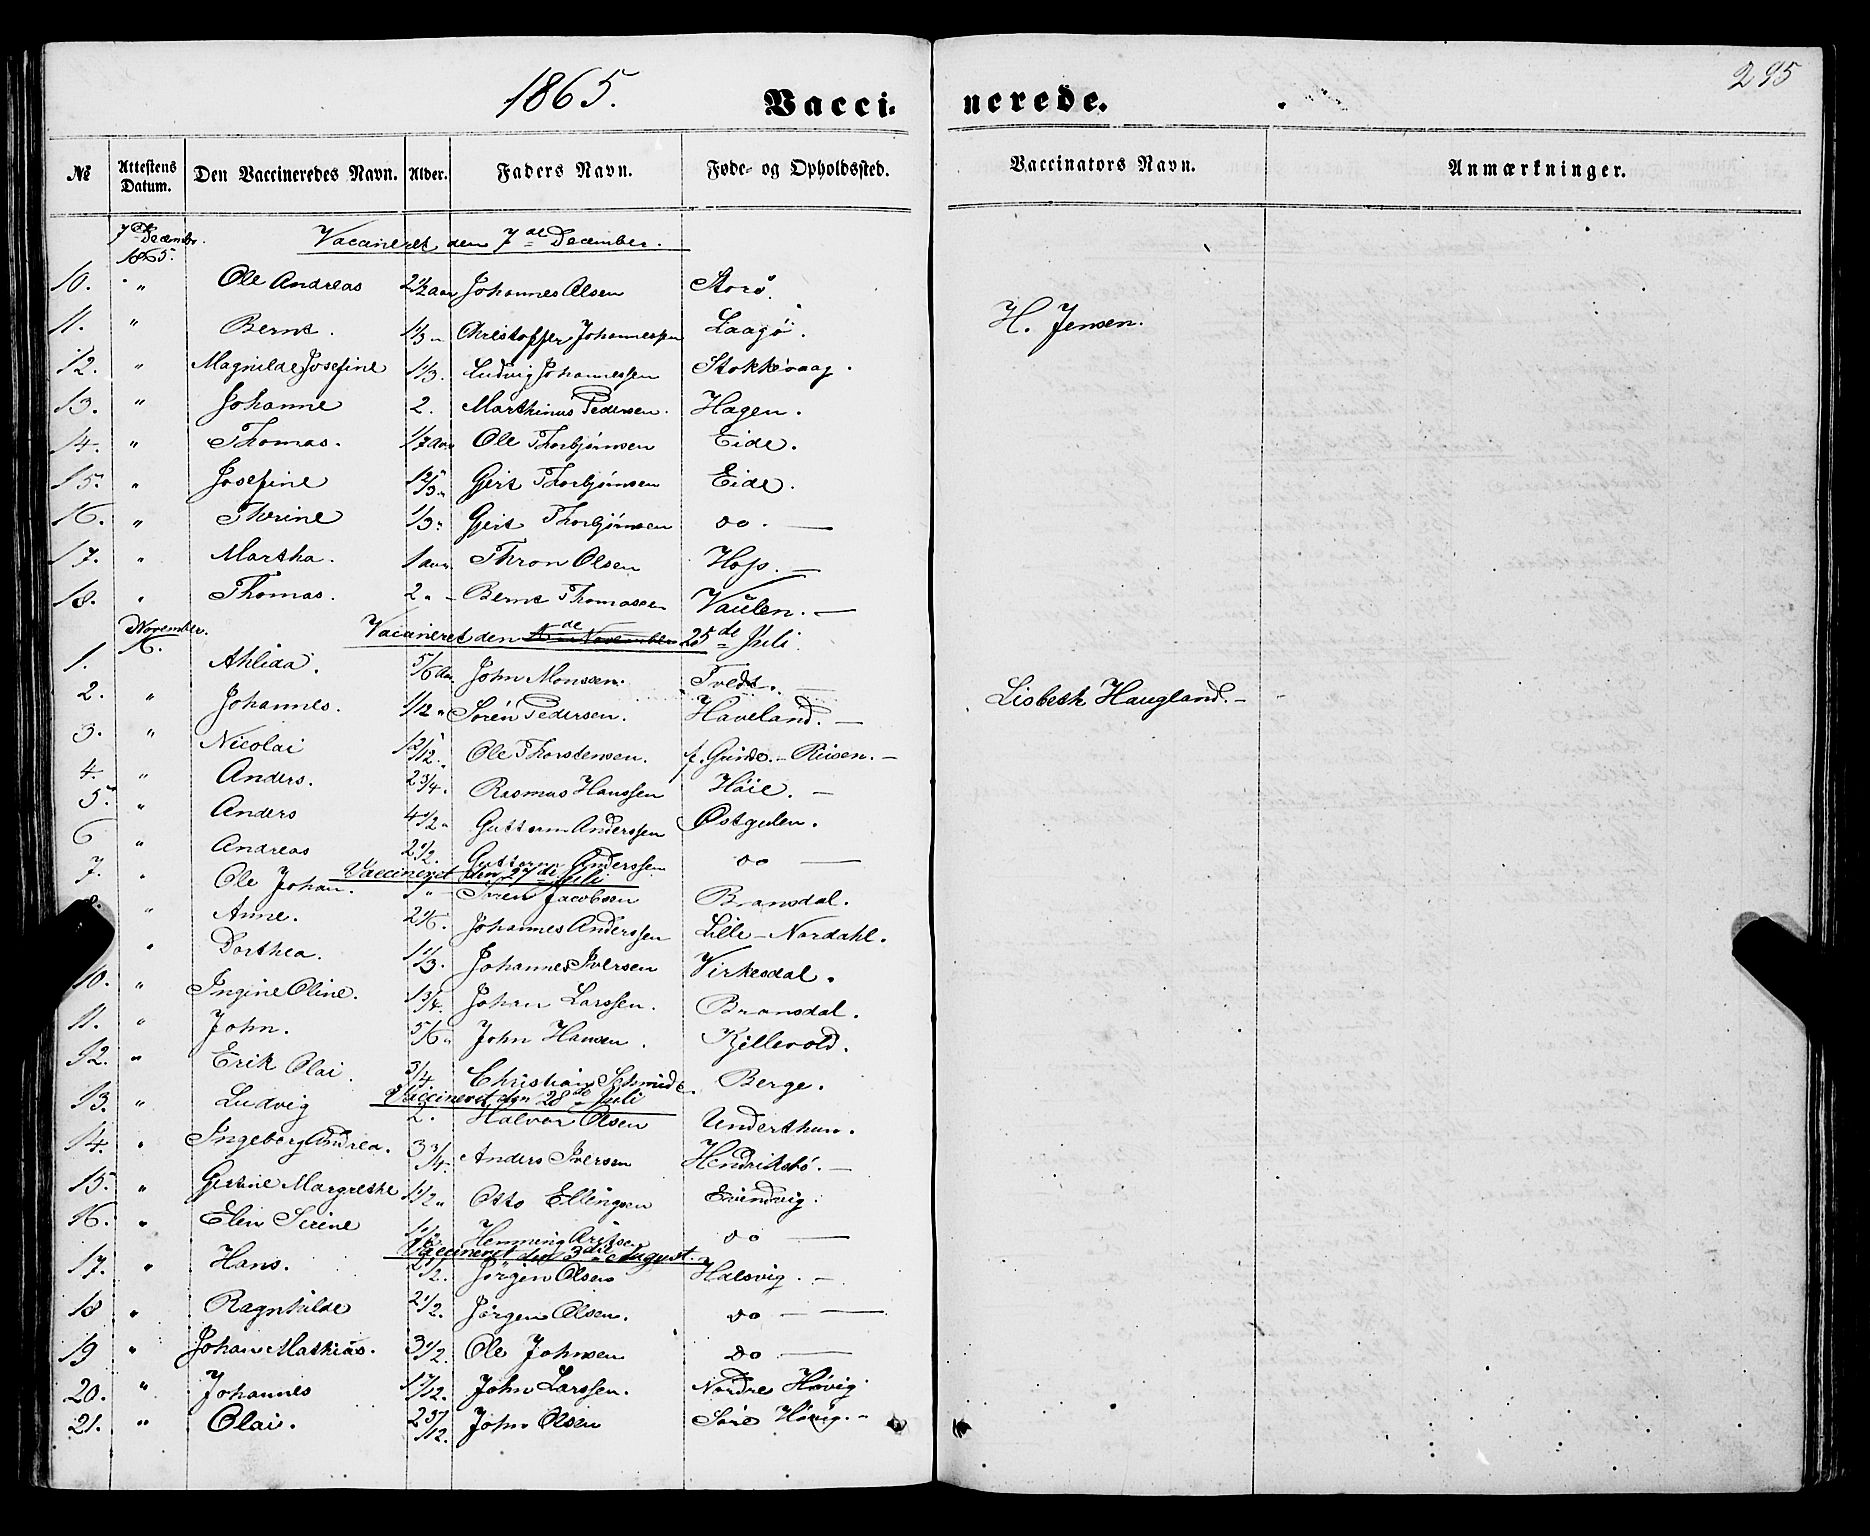 1865.
Vacci-
nerede.
295
№ Attestens Datum. Den Vaccineredes Navn. Alder. Faders Navn. Føde- og Opholdssted. Vaccinators Navn. Anmærkninger.
7de December 1865. Vaccineret den 7de December.
10. " Ole Andreas 2 1/2 aar Johannes Olsen Storø.
11. " Bernt. 1 1/3 " Christoffer Johannessen Laagø. H. Jensen.
12. " Magnilde Josefine 1 1/3. Ludvig Johannessen Stokkevaag.
13. " Johanne 2. Marthinus Pedersen. Hagen.
14. " Thomas. Ole Thorbjørnsen Eide.
15. " Josefine Gjert Thorbjørnsen Eide.
16. " Therine 1/3 " Gjert Thorbjørnsen do. —
17. " Martha. 1 aar. Thron Olsen Hop. —
18. " Thomas. 2 " Bernt Thomassen Vaulen. —
November 16. Vaccineret den 25de Juli.
1. Ahlida. 5/6 Aar John Monssen. Tvedt.
2. " Johannes. 1/12 " Søren Pedersen. Haveland. — Lisbeth Haugland. —
3. " Nicolai Ole Thorstensen. f. Grinde. — Riisen. —
4. " Anders. 2 3/4. Rasmus Hanssen Høie. —
5. " Anders 4 1/2 " Guttorm Anderssen Østgulen.
6 " Andreas 2 1/2. Guttorm Anderssen do —
Vaccineret den 27de Juli
7. " Ole Johan. Søren Jacobsen Bransdal.
8. " Anne. 2 1/6. Johannes Anderssen Lille-Nordahl.
" Dorthea. 1 1/3. Johannes Iversen Virkesdal.
10. " Ingine Oline. 1 3/4. Johan Larssen. Bransdal.
11. " John. 5/6 " John Hansen. Kjellevold.
12. " Erik Olai. 3/4 Christian Schmidt. Berge.
Vaccineret den 28de Juli
13. " Ludvig 2. Halvor Olsen Underthun.
14. " Ingeborg Andrea. 3 3/4. Anders Iversen Hendriksbø. —
15. " Gertine Margrethe 1 1/2 " Otto Ellingsen Evindvig.
16. " Elen Serine Henning do —
Vaccineret den 3die August.
17. " Hans. 2 1/2. Jørgen Olsen Halsvig. —
18 " Ragnhilde 2 1/2. Jørgen Olsen. do — —
19 " Johan Mathias. 3 1/2. Ole Johnsen do —
20. " Johannes 1 7/12. John Larssen. Nordre Høvig.
21. " Olai. John Olsen Søre Høvig. —